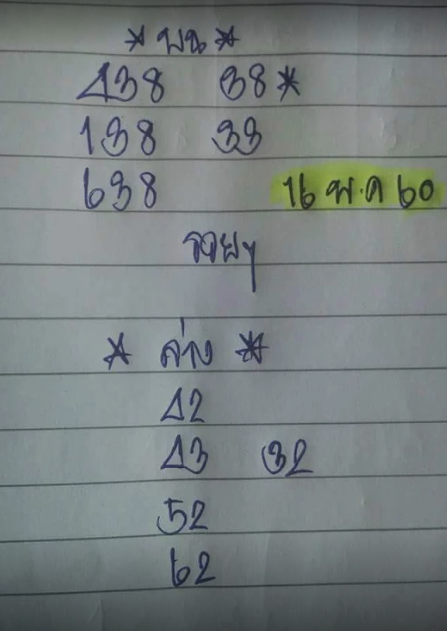 * บน *
438 38*
138 33
638
16 พ.ค 60
รวยๆ
* ล่าง *
42
43 32
52
62